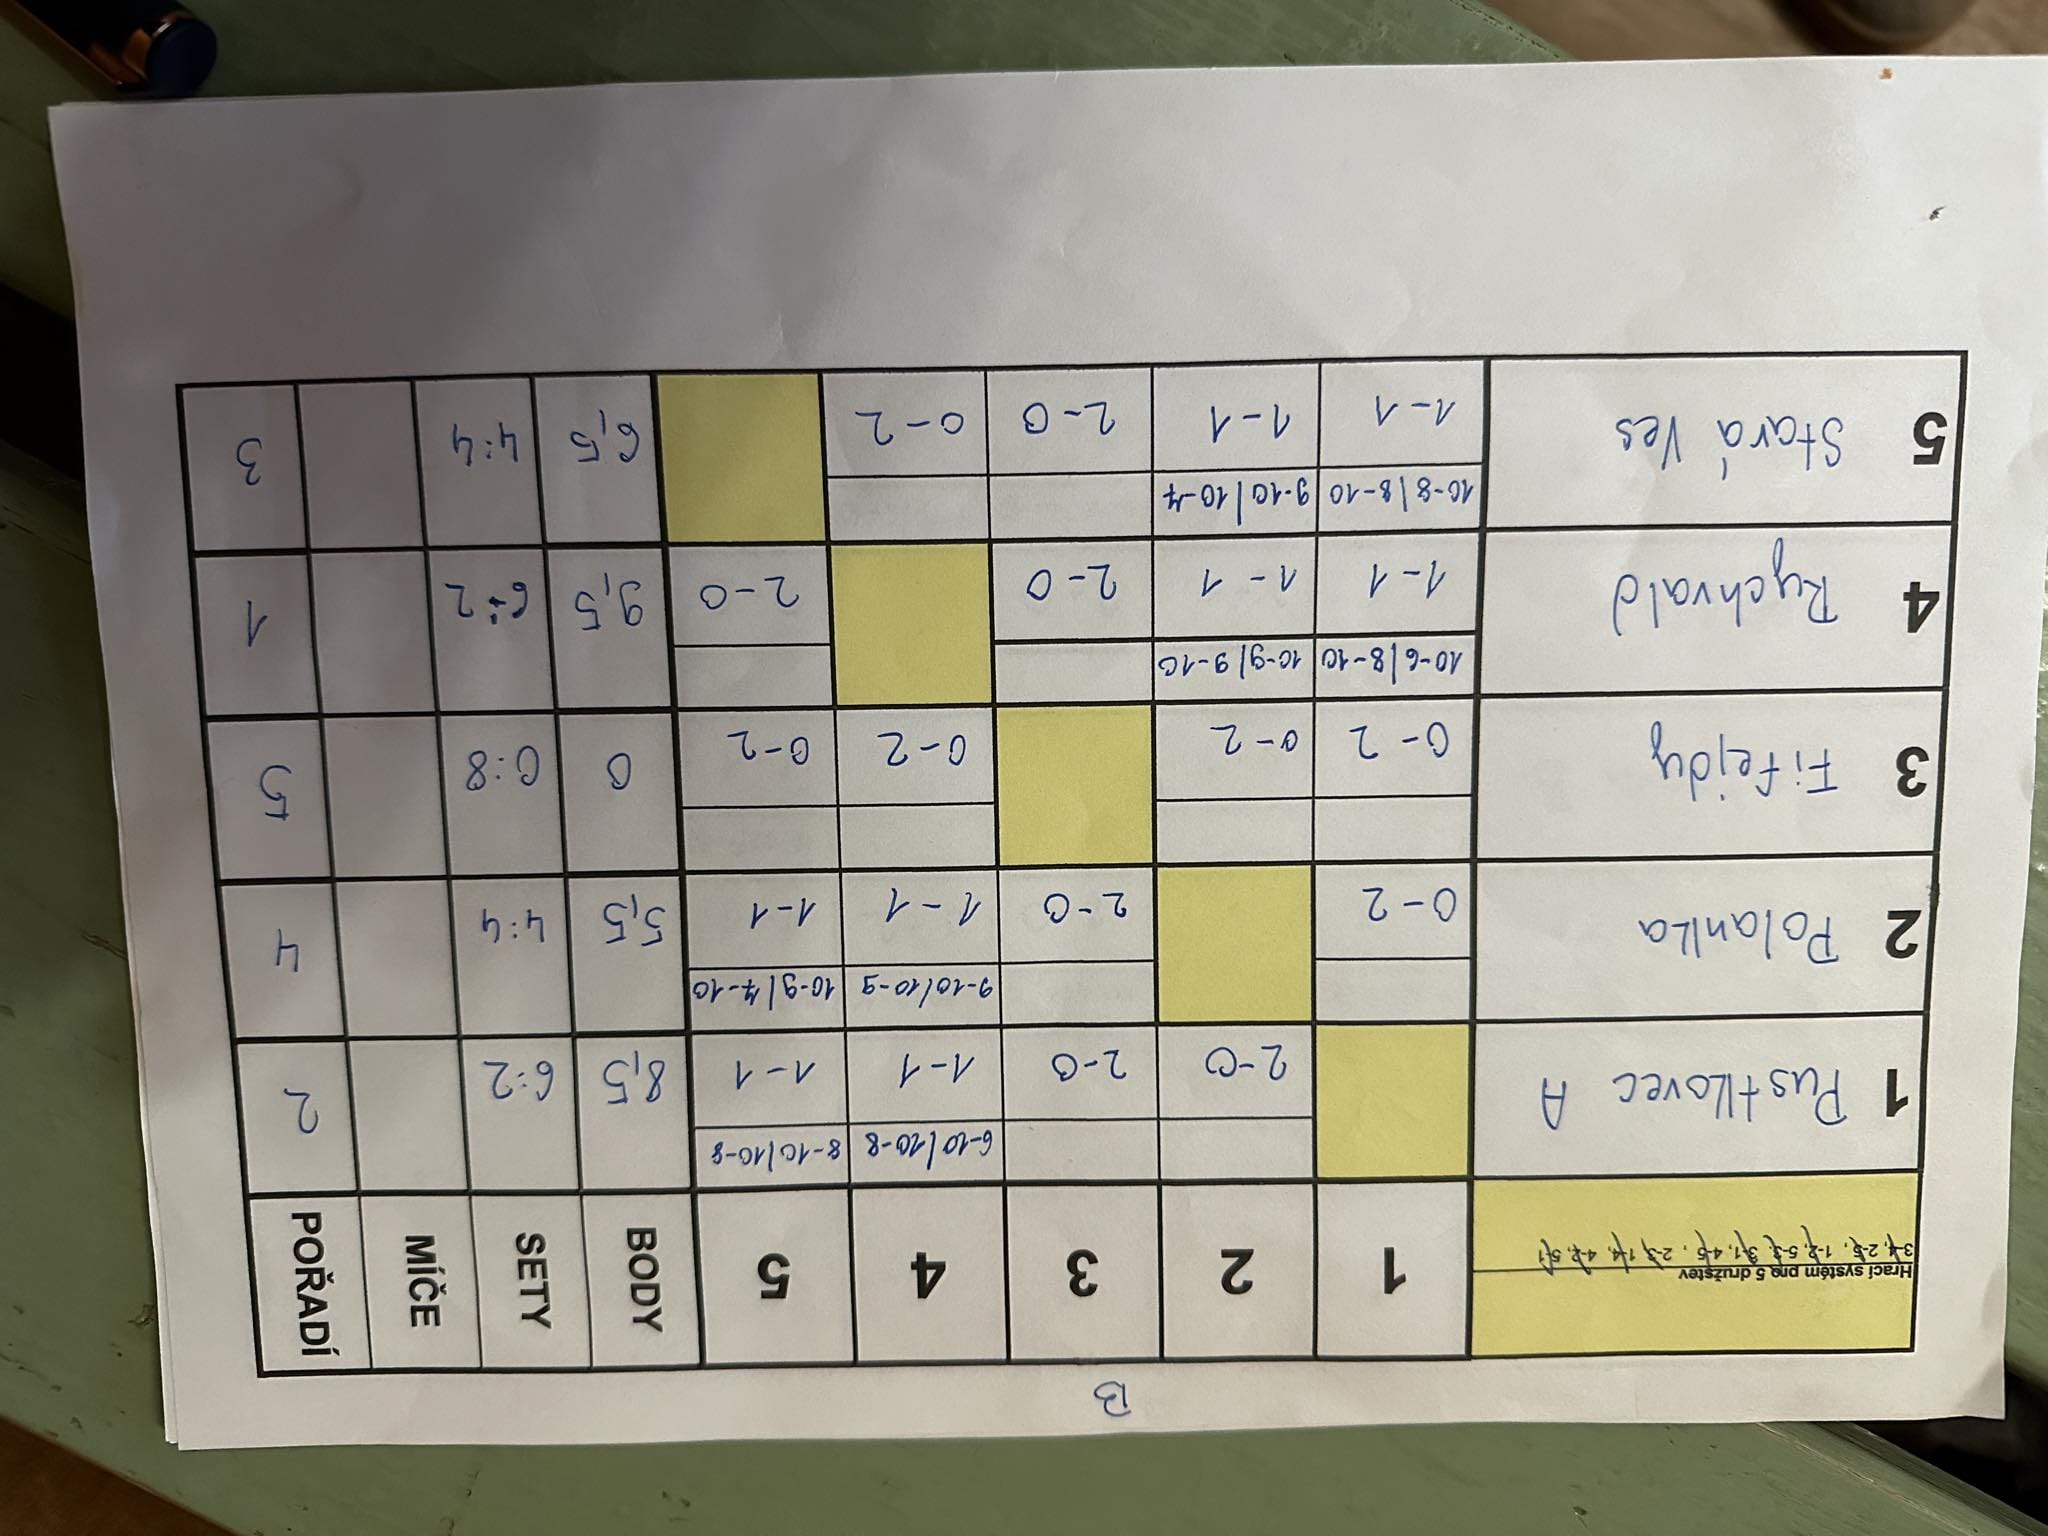 B
Hrací systém pro 5 družstev
3-4, 2-5, 1-2, 5-3, 3-1, 4-5, 2-3, 1-4, 4-2, 5-1
1 2 3 4 5 BODY SETY MÍČE POŘADÍ
6-10/10-8 8-10/10-8
1 Pustkovec A 2-0 2-0 1-1 1-1 8,5 6:2 2
9-10/10-9 10-9/7-10
2 Polanka 0-2 2-0 1-1 1-1 5,5 4:4 4
3 Fifejdy 0-2 0-2 0-2 0-2 0 0:8 5
10-6/8-10 10-9/9-10
4 Rychvald 1-1 1-1 2-0 2-0 9,5 6:2 1
10-8/8-10 9-10/10-7
5 Stará Ves 1-1 1-1 2-0 0-2 6,5 4:4 3